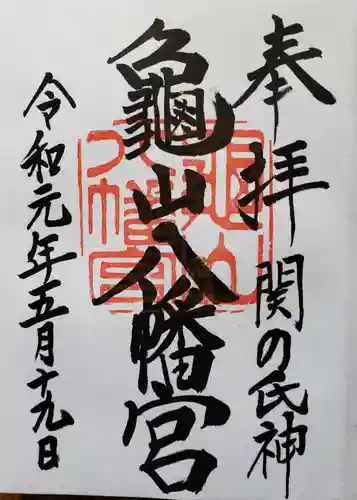 奉拝 関の氏神
龜山八幡宮
令和元年五月十九日
龜山八幡宮